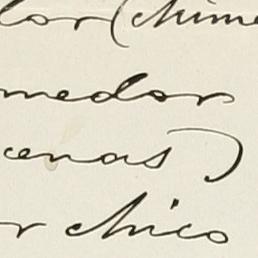 lor (chime
medor
cenas)
r chico